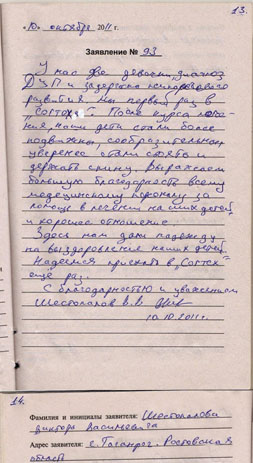 13.
«10» октября 2011 г.
Заявление № 93
У нас две девочки, диагноз
ДЦП и задержка психоречевого
развития. Мы первый раз в
"Cortex". После курса лече-
ния, наши дети стали более
подвижны, сообразительнее,
уверенее стали стоять и
держать спинку. Выражаем
большую благодарность всему
медицинскому персоналу за
помощь в лечении наших детей
и хорошее отношение.
Здесь нам дали надежду
на выздоровление наших детей.
Надеемся приехать в "Cortex"
еще раз.
С благодарностью и уважением
Шестопалов В.В.
10.10.2011 г.
14.
Фамилия и инициалы заявителя: Шестопалова
Виктора Васильевича
Адрес заявителя: г. Таганрог. Ростовская
область